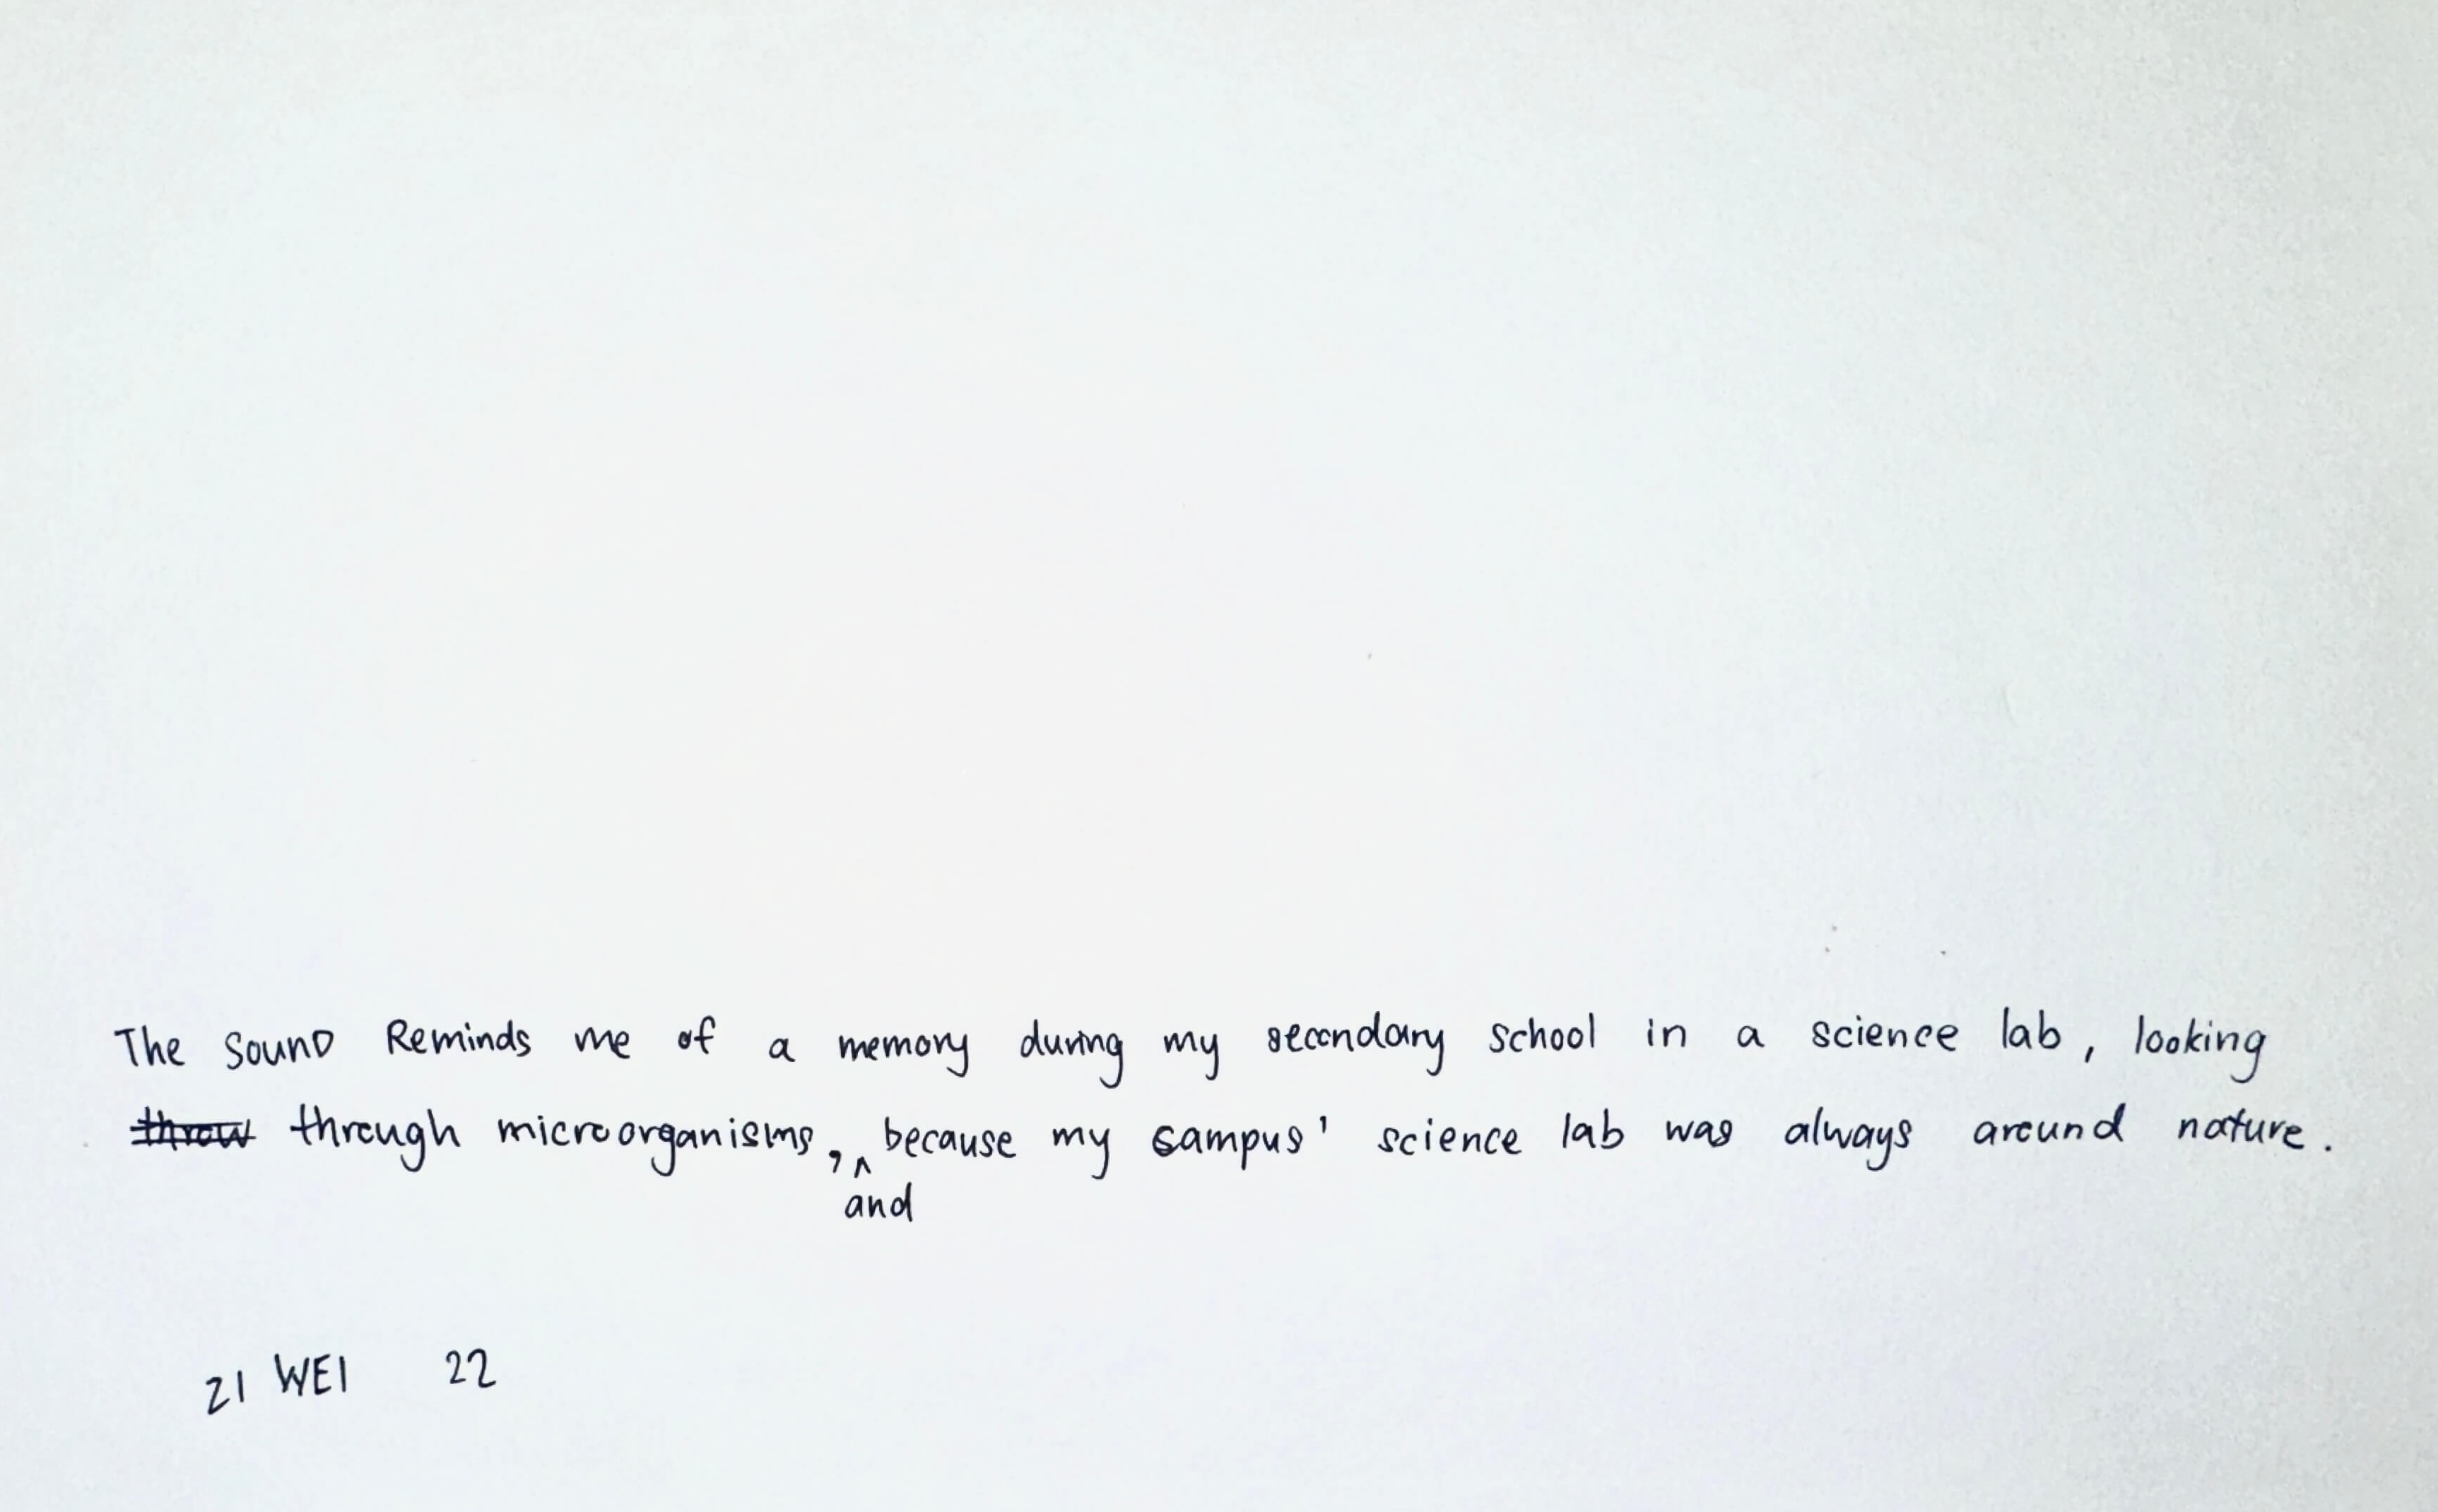 The Sound Reminds me of a memory during my secondary school in a science lab, looking
~~throw~~ through microorganisms, ^ because my campus' science lab was always around nature.
and
ZI WEI 22